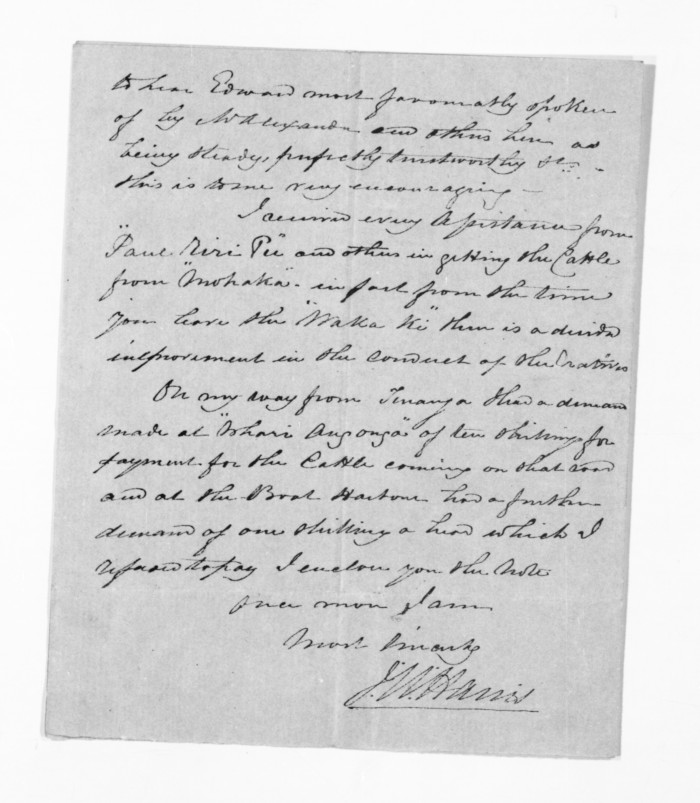 to hear Edward most favourably spoken
of by Mr Alexander and others here as
being steady, perfectly trustworthy &c -
this is to me very encouraging -
I received every Assistance from
"Paul Ririe Pu" and others in getting the Cattle
from "Mohaka" - in fact from the time
you leave the "Waka Ki" there is a decided
improvement in the conduct of the Natives
On my way from Turanga I had a demand
made at "Whari Auronga" of ten shillings for
payment for the Cattle coming on that road
and at the Boat Harbour had a further
demand of one shilling a head which I
refused to pay I enclose you the Note
once more I am
Most Sincerely
J. W. Harris